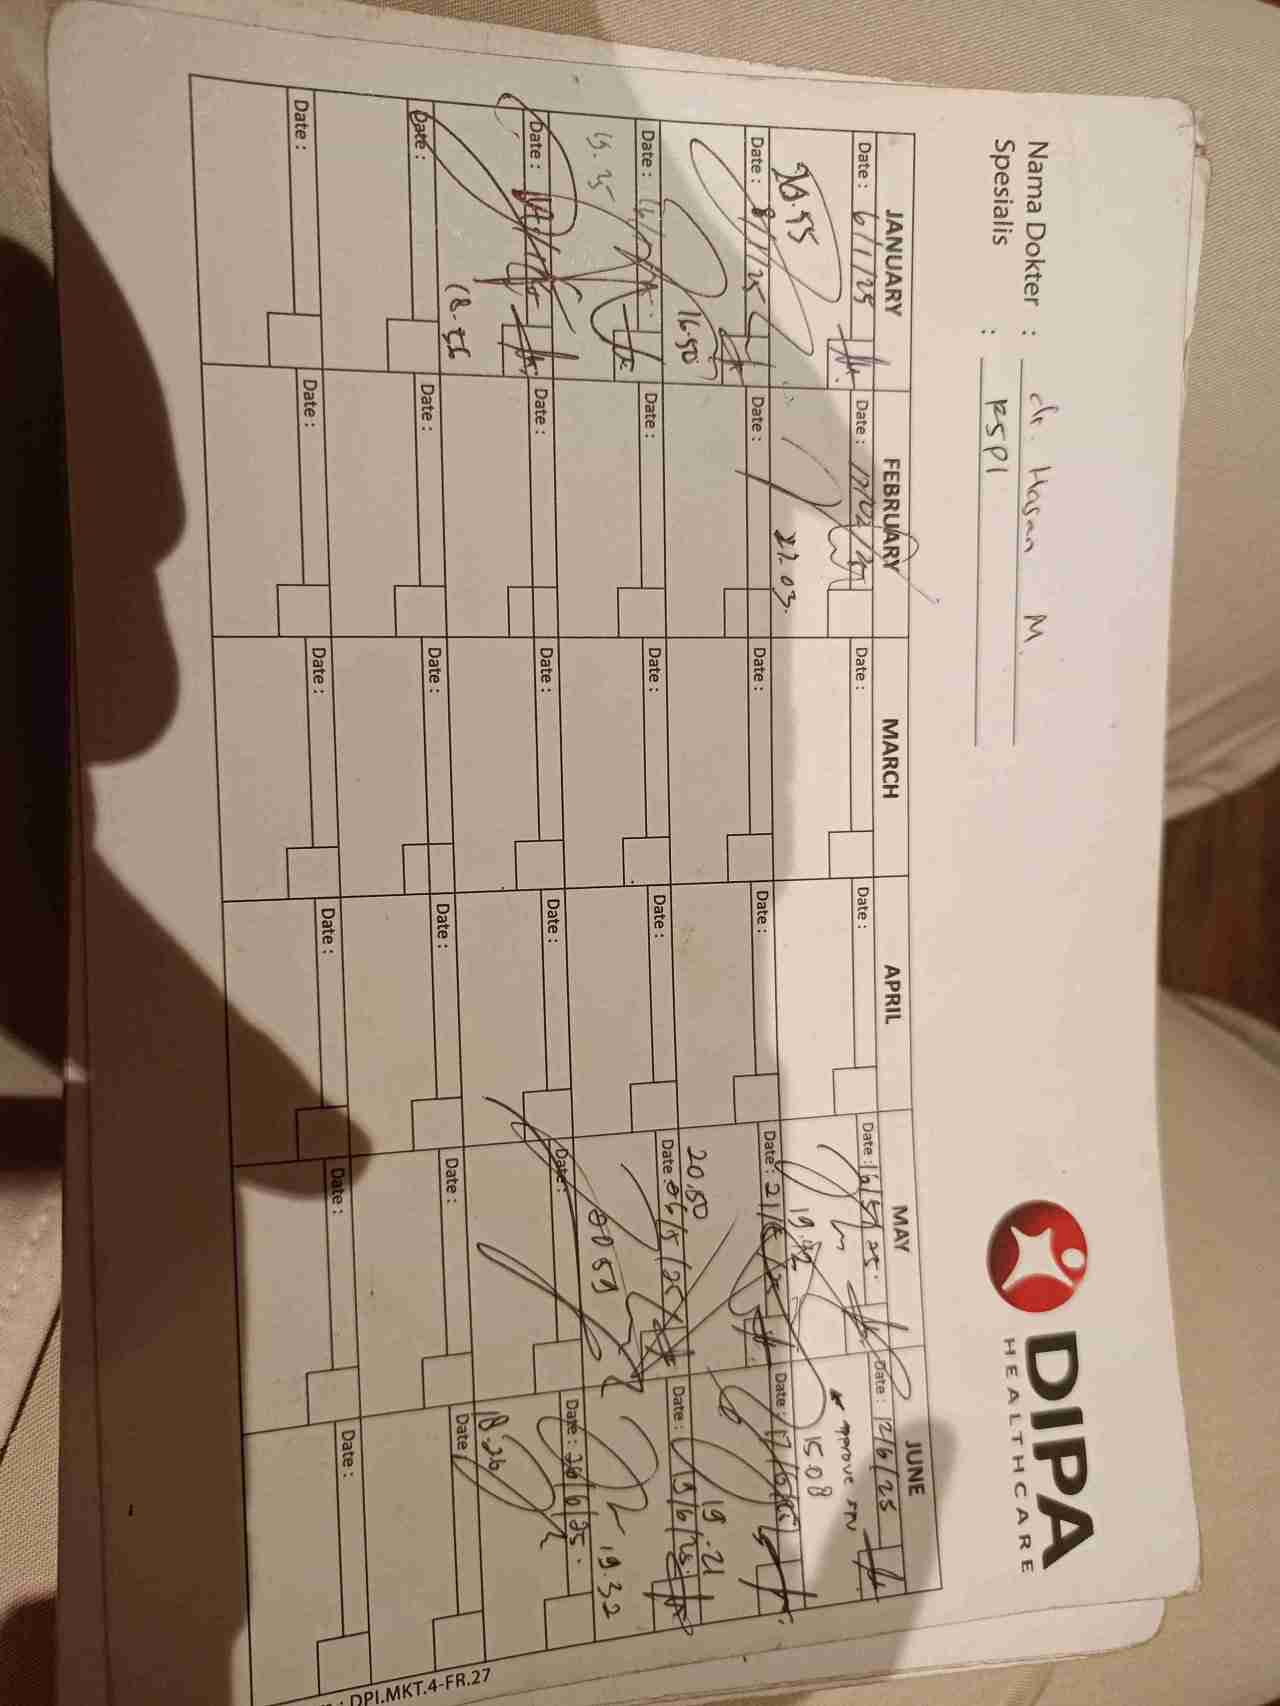 DIPA
HEALTHCARE
Nama Dokter : dr. Hasan M.
Spesialis : RSPI
JANUARY FEBRUARY MARCH APRIL MAY JUNE
Date : 6/1/25 Date : 17/02/25 Date : Date : Date : 16/5/25. Date : 12/6/25
20.55 21.03. 19.42 15.08
Date : 8/1/25 Date : Date : Date : Date : 21/5/25 Date : 17/6/25
16.50 20.50 19.21
Date : Date : Date : Date : Date : Date : 19/6/25.
19.25 19.32
Date : Date : Date : Date : Date : Date : 26/6/25.
18.26
Date : Date : Date : Date : Date : Date :
Date : Date : Date : Date : Date : Date :
: DPI.MKT.4-FR.27